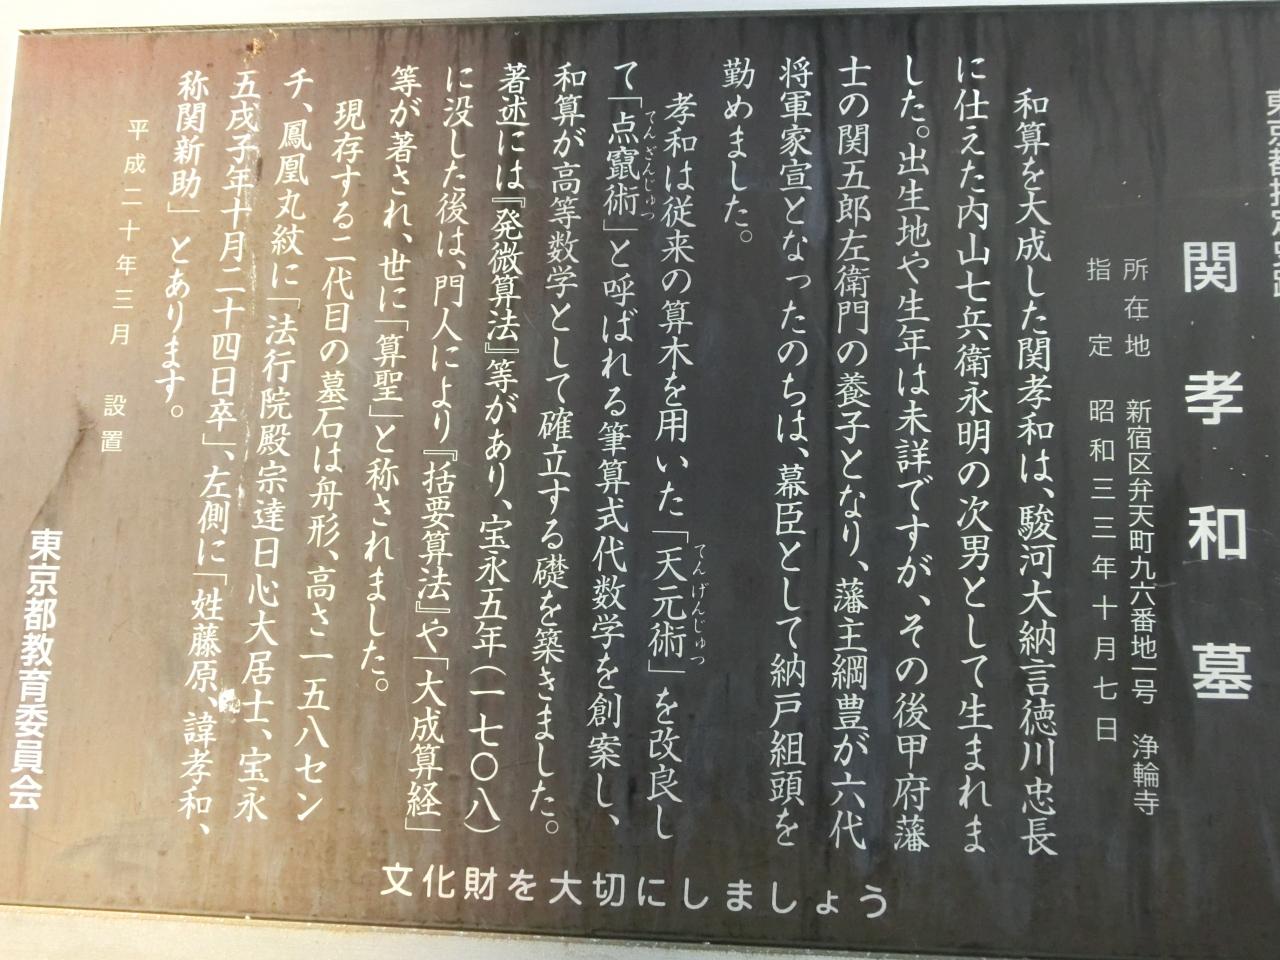 東京都指定史跡
関孝和墓
所在地 新宿区弁天町九六番地一号 浄輪寺
指定 昭和三三年十月七日
和算を大成した関孝和は、駿河大納言徳川忠長
に仕えた内山七兵衛永明の次男として生まれま
した。出生地や生年は未詳ですが、その後甲府藩
士の関五郎左衛門の養子となり、藩主綱豊が六代
将軍家宣となったのちは、幕臣として納戸組頭を
勤めました。
孝和は従来の算木を用いた「天元術」を改良し
てんげんじゅつ
て「点竄術」と呼ばれる筆算式代数学を創案し、
てんざんじゅつ
和算が高等数学として確立する礎を築きました。
著述には『発微算法』等があり、宝永五年(一七〇八)
に没した後は、門人により『括要算法』や「大成算経」
等が著され、世に「算聖」と称されました。
現存する二代目の墓石は舟形、高さ一五八セン
チ、鳳凰丸紋に「法行院殿宗達日心大居士、宝永
五戌子年十月二十四日卒」、左側に「姓藤原、諱孝和、
称関新助」とあります。
平成二十年三月 設置
東京都教育委員会
文化財を大切にしましょう